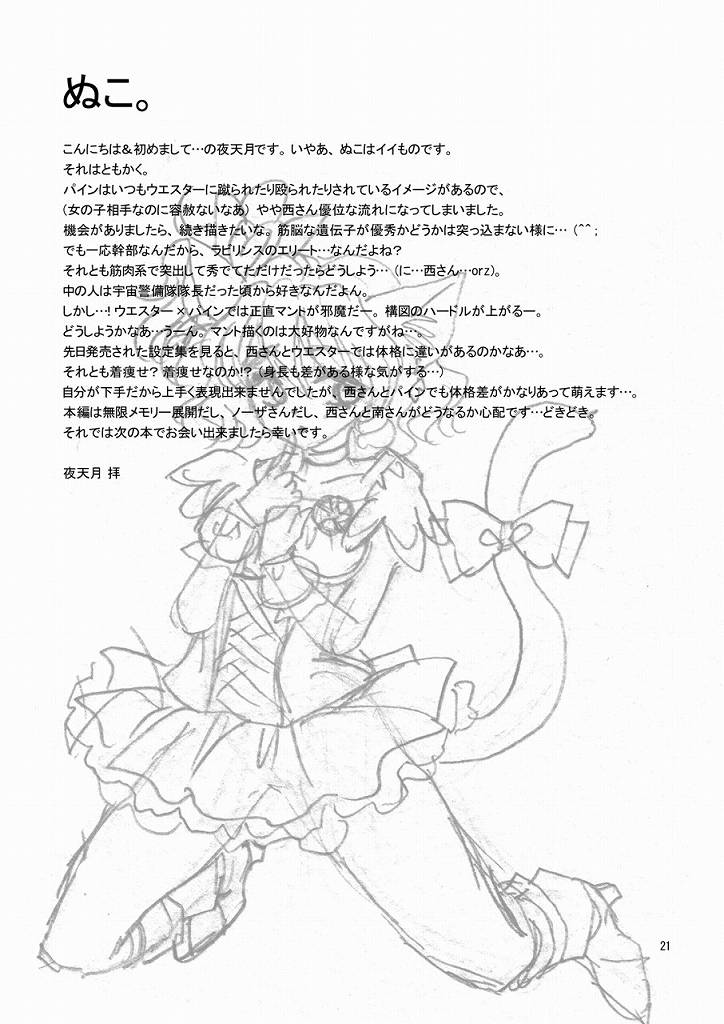 ぬこ。
こんにちは＆初めまして…の夜天月です。いやあ、ぬこはイイものです。
それはともかく。
パインはいつもウエスターに蹴られたり殴られたりされているイメージがあるので、
(女の子相手なのに容赦ないなあ) やや西さん優位な流れになってしまいました。
機会がありましたら、続き描きたいな。筋脳な遺伝子が優秀かどうかは突っ込まない様に… (^^;
でも一応幹部なんだから、ラビリンスのエリート…なんだよね？
それとも筋肉系で突出して秀でてただけだったらどうしよう… (に…西さん…orz)。
中の人は宇宙警備隊隊長だった頃から好きなんだよん。
しかし…！ウエスター×パインでは正直マントが邪魔だー。構図のハードルが上がるー。
どうしようかなあ…うーん。マント描くのは大好物なんですがね…。
先日発売された設定集を見ると、西さんとウエスターでは体格に違いがあるのかなあ…。
それとも着痩せ？着痩せなのか!? (身長も差がある様な気がする…)
自分が下手だから上手く表現出来ませんでしたが、西さんとパインでも体格差がかなりあって萌えます…。
本編は無限メモリー展開だし、ノーザさんだし、西さんと南さんがどうなるか心配です…どきどき。
それでは次の本でお会い出来ましたら幸いです。
夜天月 拝
21